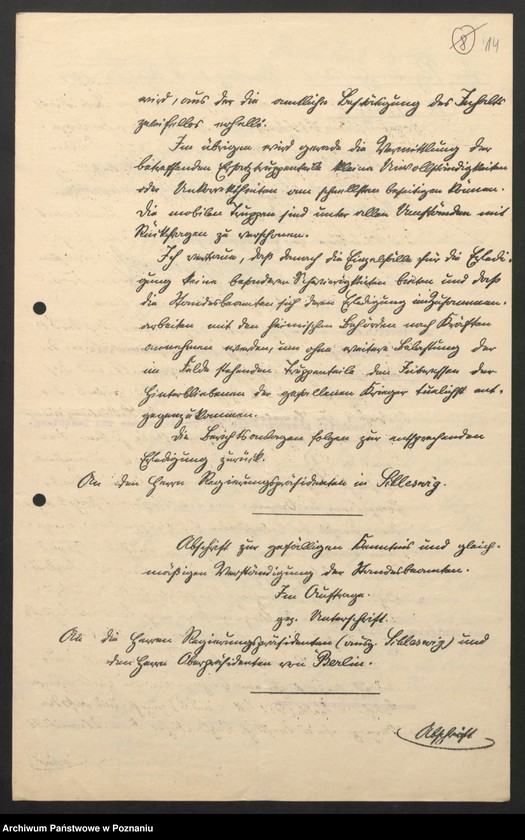 8 14
wird, aus der die amtliche Bestätigung des Inhalts
zweifellos erhellt.
Im übrigen wird gerade die Vermittlung der
betreffenden Ersatztruppenteile kleine Unvollständigkeiten
oder Unkorrektheiten am schnellsten beseitigen können.
Die mobilen Truppen sind unter allen Umständen mit
Rückfragen zu verschonen.
Ich vertraue, daß danach die Einzelfälle für die Erledi-
gung keine besonderen Schwierigkeiten bieten und daß
die Standesbeamten sich deren Erledigung im Zusammen-
arbeiten mit den heimischen Behörden nach Kräften
annehmen werden, um ohne weitere Belastung der
im Felde stehenden Truppenteile den Interessen der
Hinterbliebenen der gefallenen Krieger tunlichst ent-
gegenzukommen.
Die Berichtsanlagen folgen zur entsprechenden
Erledigung zurück.
An den Herrn Regierungspräsidenten in Schleswig.
Abschrift zur gefälligen Kenntnis und gleich-
mäßigen Verständigung der Standesbeamten.
Im Auftrage.
gez. Unterschrift.
An die Herren Regierungspräsidenten (ausg. Schleswig) und
den Herrn Oberpräsidenten von Berlin.
Abschrift
Archiwum Państwowe w Poznaniu